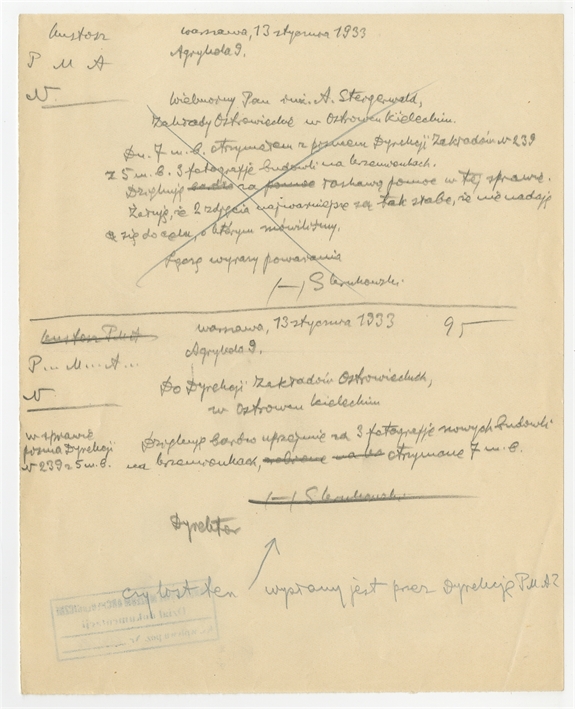 Kustosz
P M A
N.
Warszawa, 13 stycznia 1933
Agrykola 9.
Wielmożny Pan inż. A. Stergerwald,
Zakłady Ostrowieckie w Ostrowcu Kieleckim.
Dn. 7 m. b. otrzymałem z pismem Dyrekcji Zakładów N 239
z 5 m. b. 3 fotografje budowli na Krzemionkach.
Dziękuję bardzo za pomoc łaskawą pomoc w tej sprawie.
Żałuję, że 2 zdjęcia najważniejsze są tak słabe, że nie nadają
się do celu, o którym mówiliśmy.
Łączę wyrazy poważania
(—) S Krukowski.
Kustosz PMA
P... M... A...
N
Warszawa, 13 stycznia 1933
Agrykola 9.
95
Do Dyrekcji Zakładów Ostrowieckich,
w Ostrowcu Kieleckim
w sprawie
pisma Dyrekcji
N 239 z 5 m. b.
Dziękuję bardzo uprzejmie za 3 fotografje nowych budowli
na Krzemionkach, otrzymane 7 m. b.
(—) S Krukowski.
Dyrektor
czy list ten wysłany jest przez Dyrekcję P.M.A?